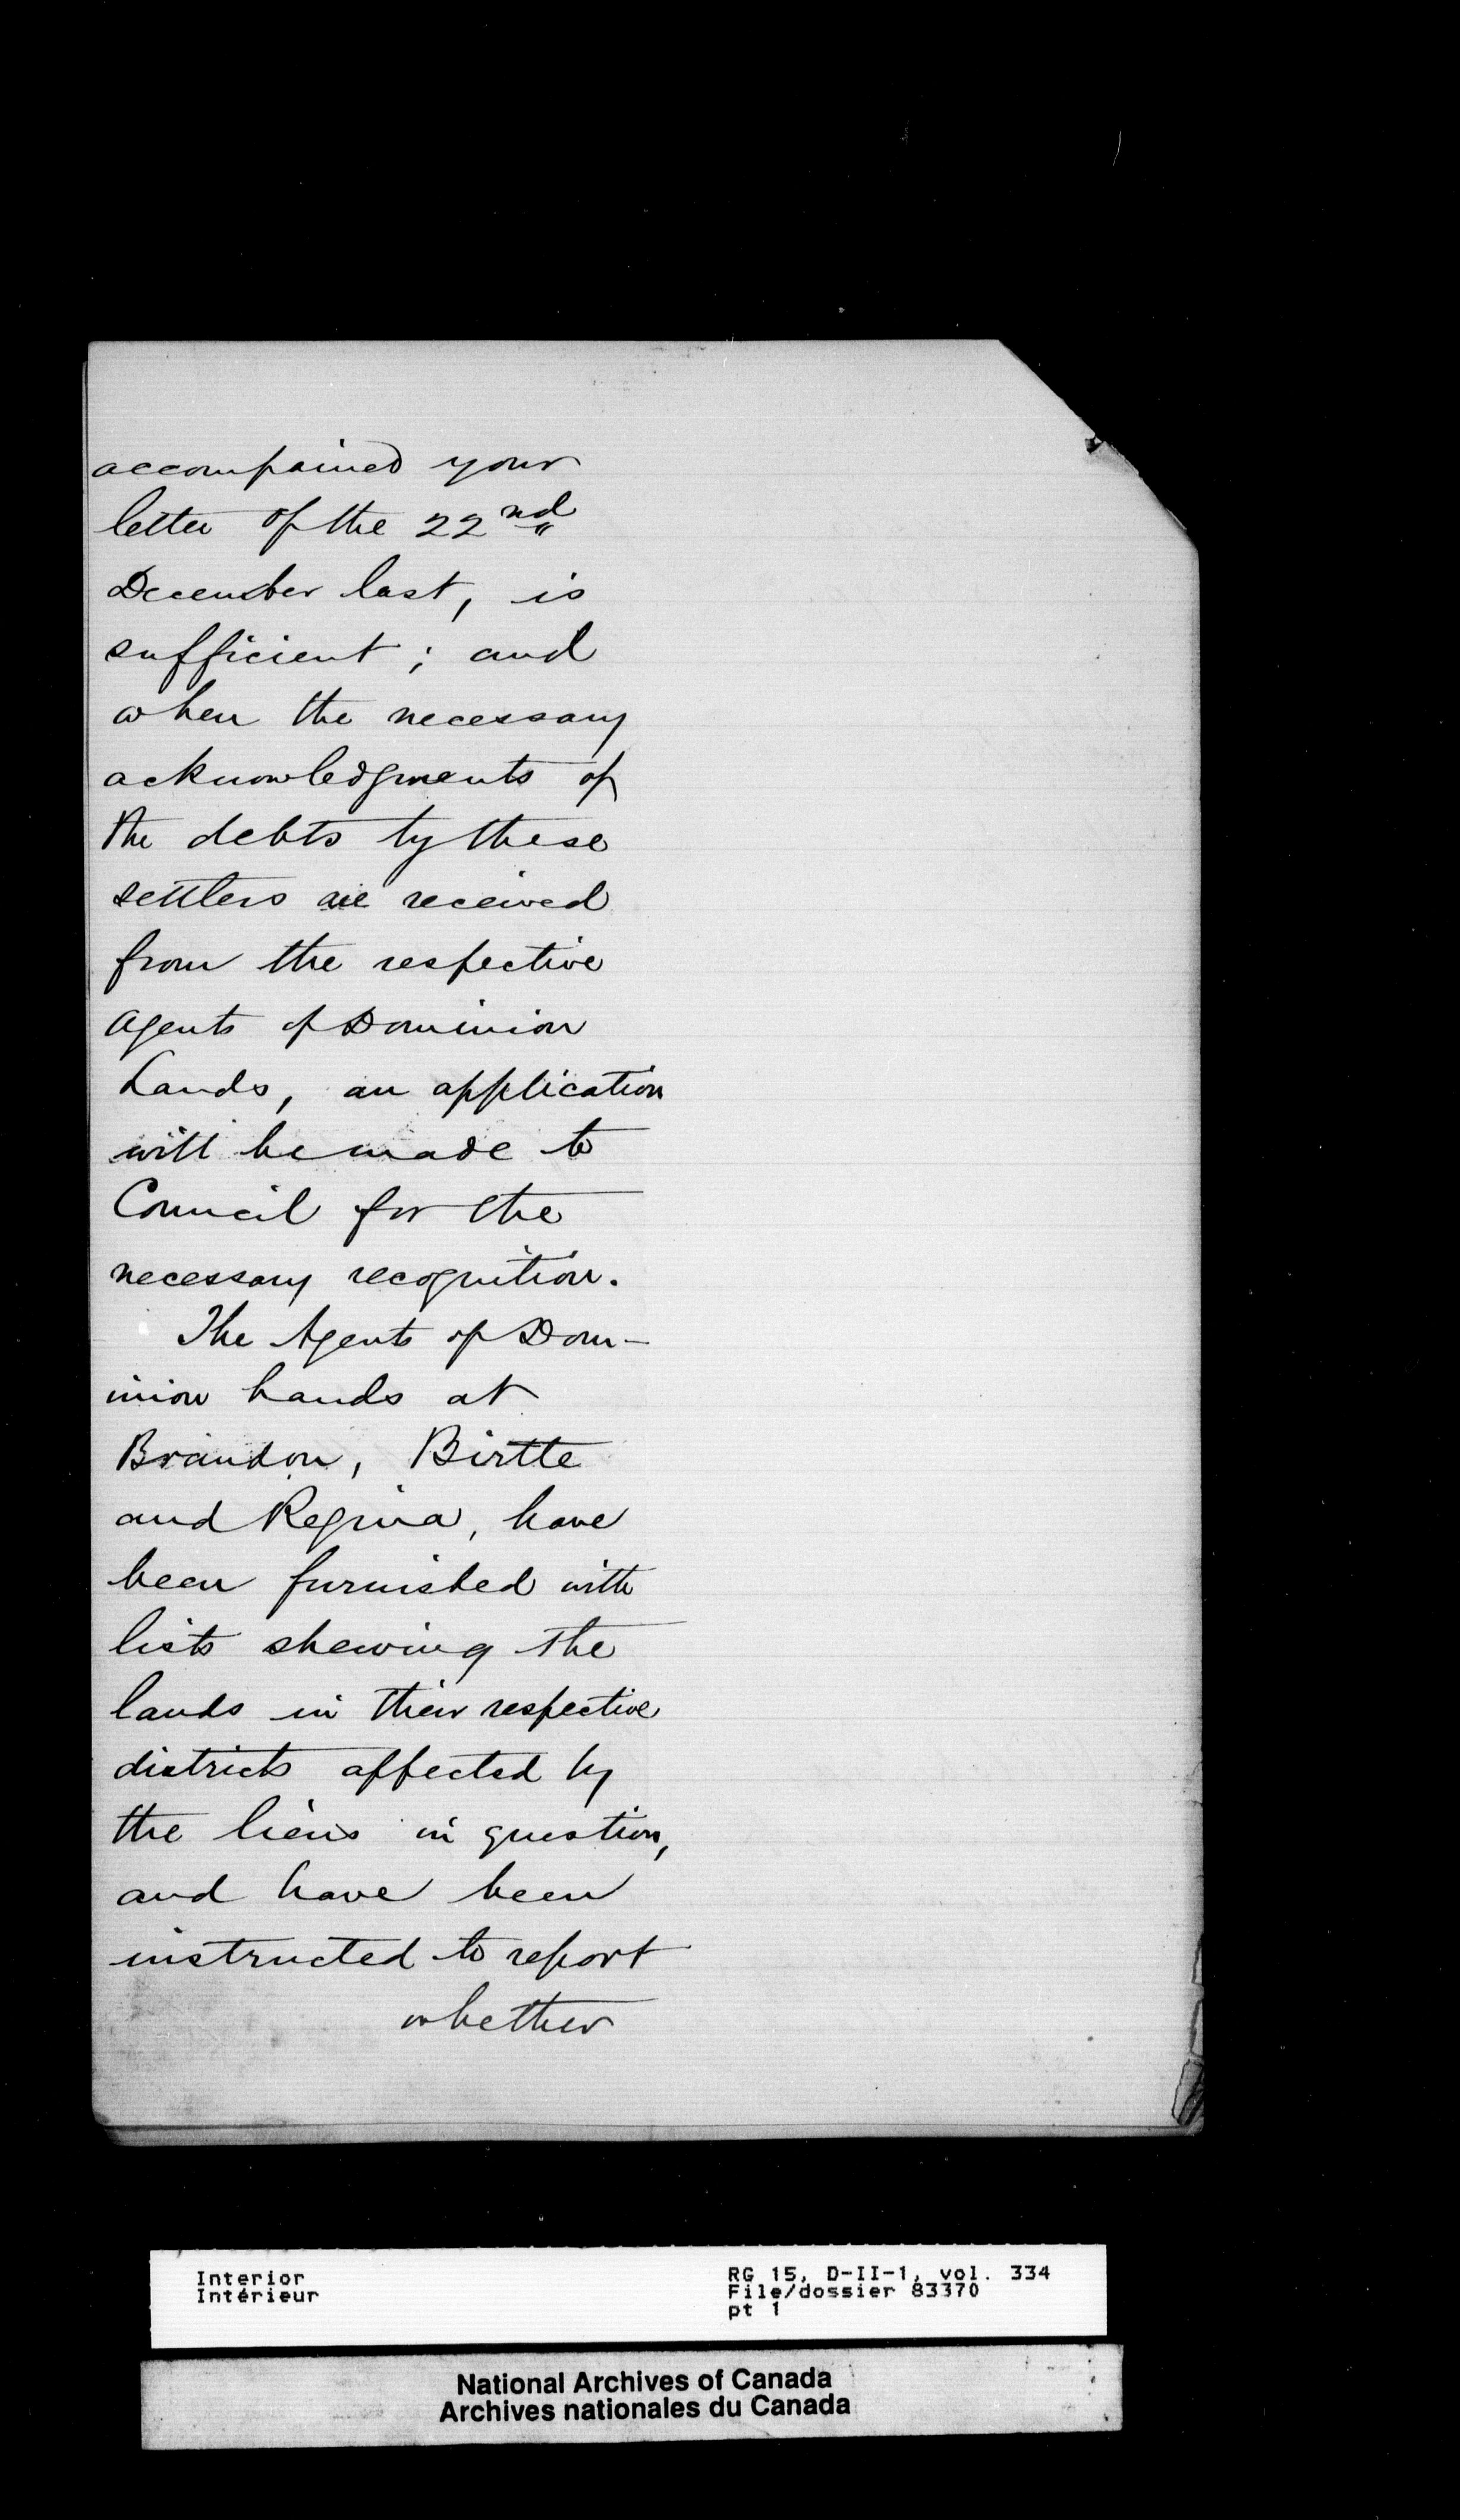 accompained your
letter of the 22nd
December last, is
sufficient; and
when the necessary
acknowledgments of
the debts by these
settlers are received
from the respective
Agents of Dominion
Lands, an application
will be made to
Council for the
necessary recognition.
The Agents of Dom-
inion Lands at
Brandon, Birtle
and Regina, have
been furnished with
lists shewing the
lands in their respective
districts affected by
the liens in question,
and have been
instructed to report
whether
Interior
Intérieur
RG 15, D-II-1, vol. 334
File/dossier 83370
pt 1
National Archives of Canada
Archives nationales du Canada